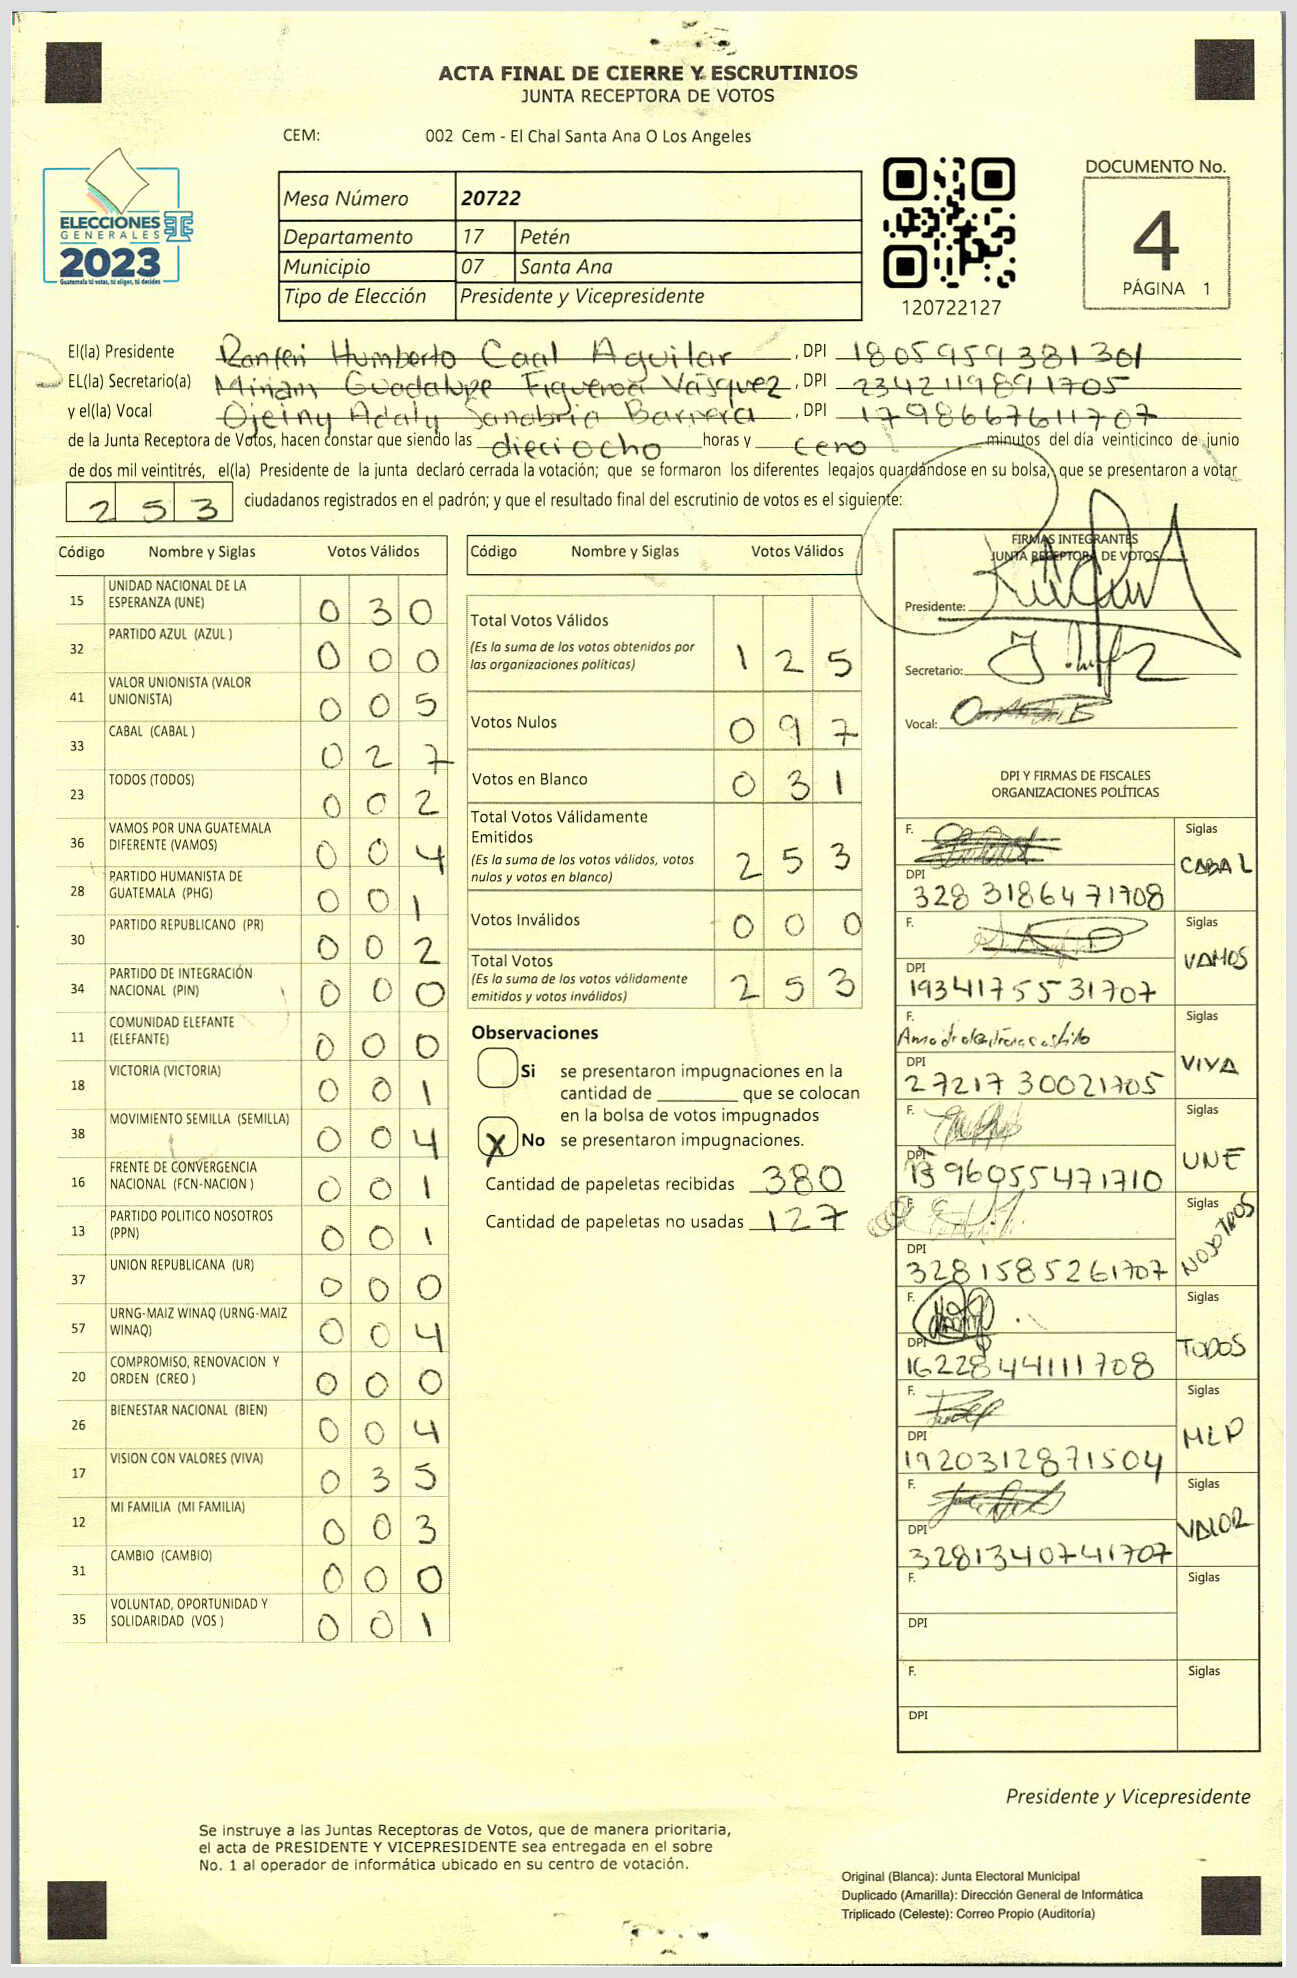 ACTA FINAL DE CIERRE Y ESCRUTINIOS
JUNTA RECEPTORA DE VOTOS
CEM: 002 Cem - El Chal Santa Ana O Los Angeles
ELECCIONES
GENERALES
2023
Guatemala tú votas, tú eliges, tú decides
TSE
Mesa Número 20722
Departamento 17 Petén
Municipio 07 Santa Ana
Tipo de Elección Presidente y Vicepresidente
120722127
DOCUMENTO No.
4
PÁGINA 1
El(la) Presidente Ranferi Humberto Caal Aguilar, DPI 1805959381301
EL(la) Secretario(a) Miriam Guadalupe Figueroa Vásquez, DPI 2342119891705
y el(la) Vocal Ojeiny Adaly Sanabria Barrera, DPI 1798667611707
de la Junta Receptora de Votos, hacen constar que siendo las dieciocho horas y cero minutos del día veinticinco de junio
de dos mil veintitrés, el(la) Presidente de la junta declaró cerrada la votación; que se formaron los diferentes legajos quardándose en su bolsa, que se presentaron a votar
253 ciudadanos registrados en el padrón; y que el resultado final del escrutinio de votos es el siguiente:
Código Nombre y Siglas Votos Válidos
15 UNIDAD NACIONAL DE LA ESPERANZA (UNE) 030
32 PARTIDO AZUL (AZUL ) 000
41 VALOR UNIONISTA (VALOR UNIONISTA) 005
33 CABAL (CABAL ) 027
23 TODOS (TODOS) 002
36 VAMOS POR UNA GUATEMALA DIFERENTE (VAMOS) 004
28 PARTIDO HUMANISTA DE GUATEMALA (PHG) 001
30 PARTIDO REPUBLICANO (PR) 002
34 PARTIDO DE INTEGRACIÓN NACIONAL (PIN) 000
11 COMUNIDAD ELEFANTE (ELEFANTE) 000
18 VICTORIA (VICTORIA) 001
38 MOVIMIENTO SEMILLA (SEMILLA) 004
16 FRENTE DE CONVERGENCIA NACIONAL (FCN-NACION ) 001
13 PARTIDO POLITICO NOSOTROS (PPN) 001
37 UNION REPUBLICANA (UR) 000
57 URNG-MAIZ WINAQ (URNG-MAIZ WINAQ) 004
20 COMPROMISO, RENOVACION Y ORDEN (CREO ) 000
26 BIENESTAR NACIONAL (BIEN) 004
17 VISION CON VALORES (VIVA) 035
12 MI FAMILIA (MI FAMILIA) 003
31 CAMBIO (CAMBIO) 000
35 VOLUNTAD, OPORTUNIDAD Y SOLIDARIDAD (VOS ) 001
Código Nombre y Siglas Votos Válidos
Total Votos Válidos 125
(Es la suma de los votos obtenidos por
las organizaciones políticas)
Votos Nulos 097
Votos en Blanco 031
Total Votos Válidamente
Emitidos 253
(Es la suma de los votos válidos, votos
nulos y votos en blanco)
Votos Inválidos 000
Total Votos 253
(Es la suma de los votos válidamente
emitidos y votos inválidos)
Observaciones
Si se presentaron impugnaciones en la
cantidad de ________ que se colocan
en la bolsa de votos impugnados
X No se presentaron impugnaciones.
Cantidad de papeletas recibidas 380
Cantidad de papeletas no usadas 127
FIRMAS INTEGRANTES
JUNTA RECEPTORA DE VOTOS
Presidente:
Secretario:
Vocal:
DPI Y FIRMAS DE FISCALES
ORGANIZACIONES POLÍTICAS
F. Siglas
CABAL
DPI
328 3186471708
F. Siglas
VAMOS
DPI
1934175531707
F. Siglas
VIVA
DPI
2721730021705
F. Siglas
UNE
DPI
1396055471710
F. Siglas
NOSOTROS
DPI
3281585261707
F. Siglas
TODOS
DPI
1622844111708
F. Siglas
MLP
DPI
1920312871504
F. Siglas
VALOR
DPI
3281340741707
F. Siglas
DPI
F. Siglas
DPI
Presidente y Vicepresidente
Se instruye a las Juntas Receptoras de Votos, que de manera prioritaria,
el acta de PRESIDENTE Y VICEPRESIDENTE sea entregada en el sobre
No. 1 al operador de informática ubicado en su centro de votación.
Original (Blanca): Junta Electoral Municipal
Duplicado (Amarilla): Dirección General de Informática
Triplicado (Celeste): Correo Propio (Auditoría)